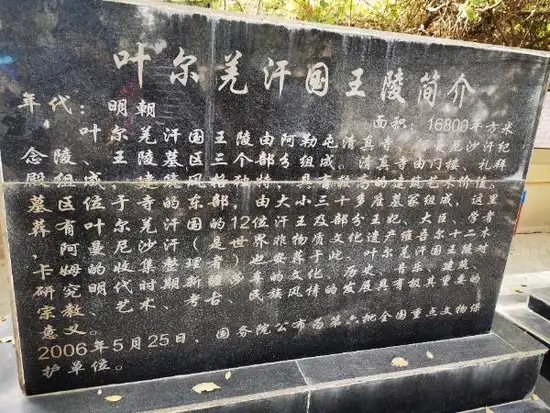 叶尔羌汗国王陵简介
年代：明朝 面积：16800平方米
叶尔羌汗国王陵由阿勒屯清真寺、阿曼尼沙汗纪
念陵、王陵墓区三个部分组成。清真寺由门楼、礼拜
殿组成，建筑风格独特，具有较高的建筑艺术价值。
墓区位于寺的东部，由大小三十多座墓冢组成，这里
葬有叶尔羌汗国的12位汗王及部分王妃、大臣、学者
，阿曼尼沙汗（是世界非物质文化遗产维吾尔十二木
卡姆的收集整理者）也安葬于此。叶尔羌汗国王陵对
研究明代时期新疆的文化、历史、音乐、建筑、
宗教、艺术、考古、民族风情的发展具有极其重要的
意义。
2006年5月25日，国务院公布为第六批全国重点文物保
护单位。